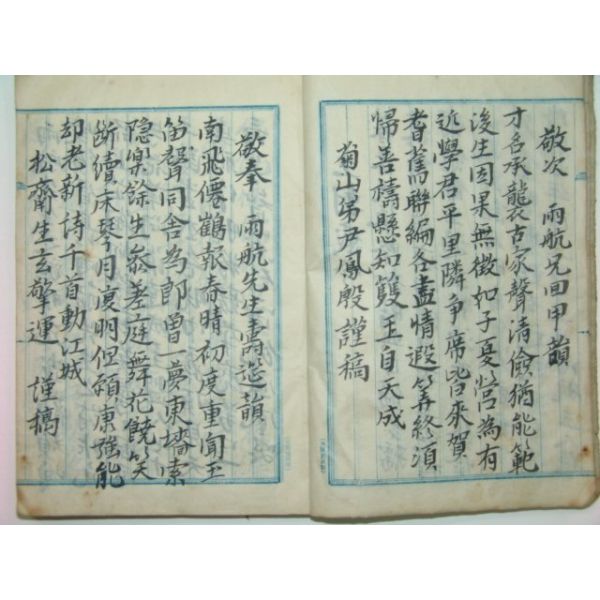 敬次　雨航兄回甲韻
才名承襲古家聲清儉猶能範
後生因果無徵如子夏營為有
近學君平里隣爭席皆來賀
耆舊聯編各盡情遐筭終須
帰善禱懸知雙玉自天成
菊山弟尹鳳殷謹稿
敬奉　雨航先生壽筵韻
南飛僊鶴報春晴初度重聞玉
笛聲同舍為郎曾一夢東墻索
隐樂餘生參差庭舞花饒笑
斷續床琴月復明但願康強能
却老新詩千首動江城
松齋生玄擎運　謹稿